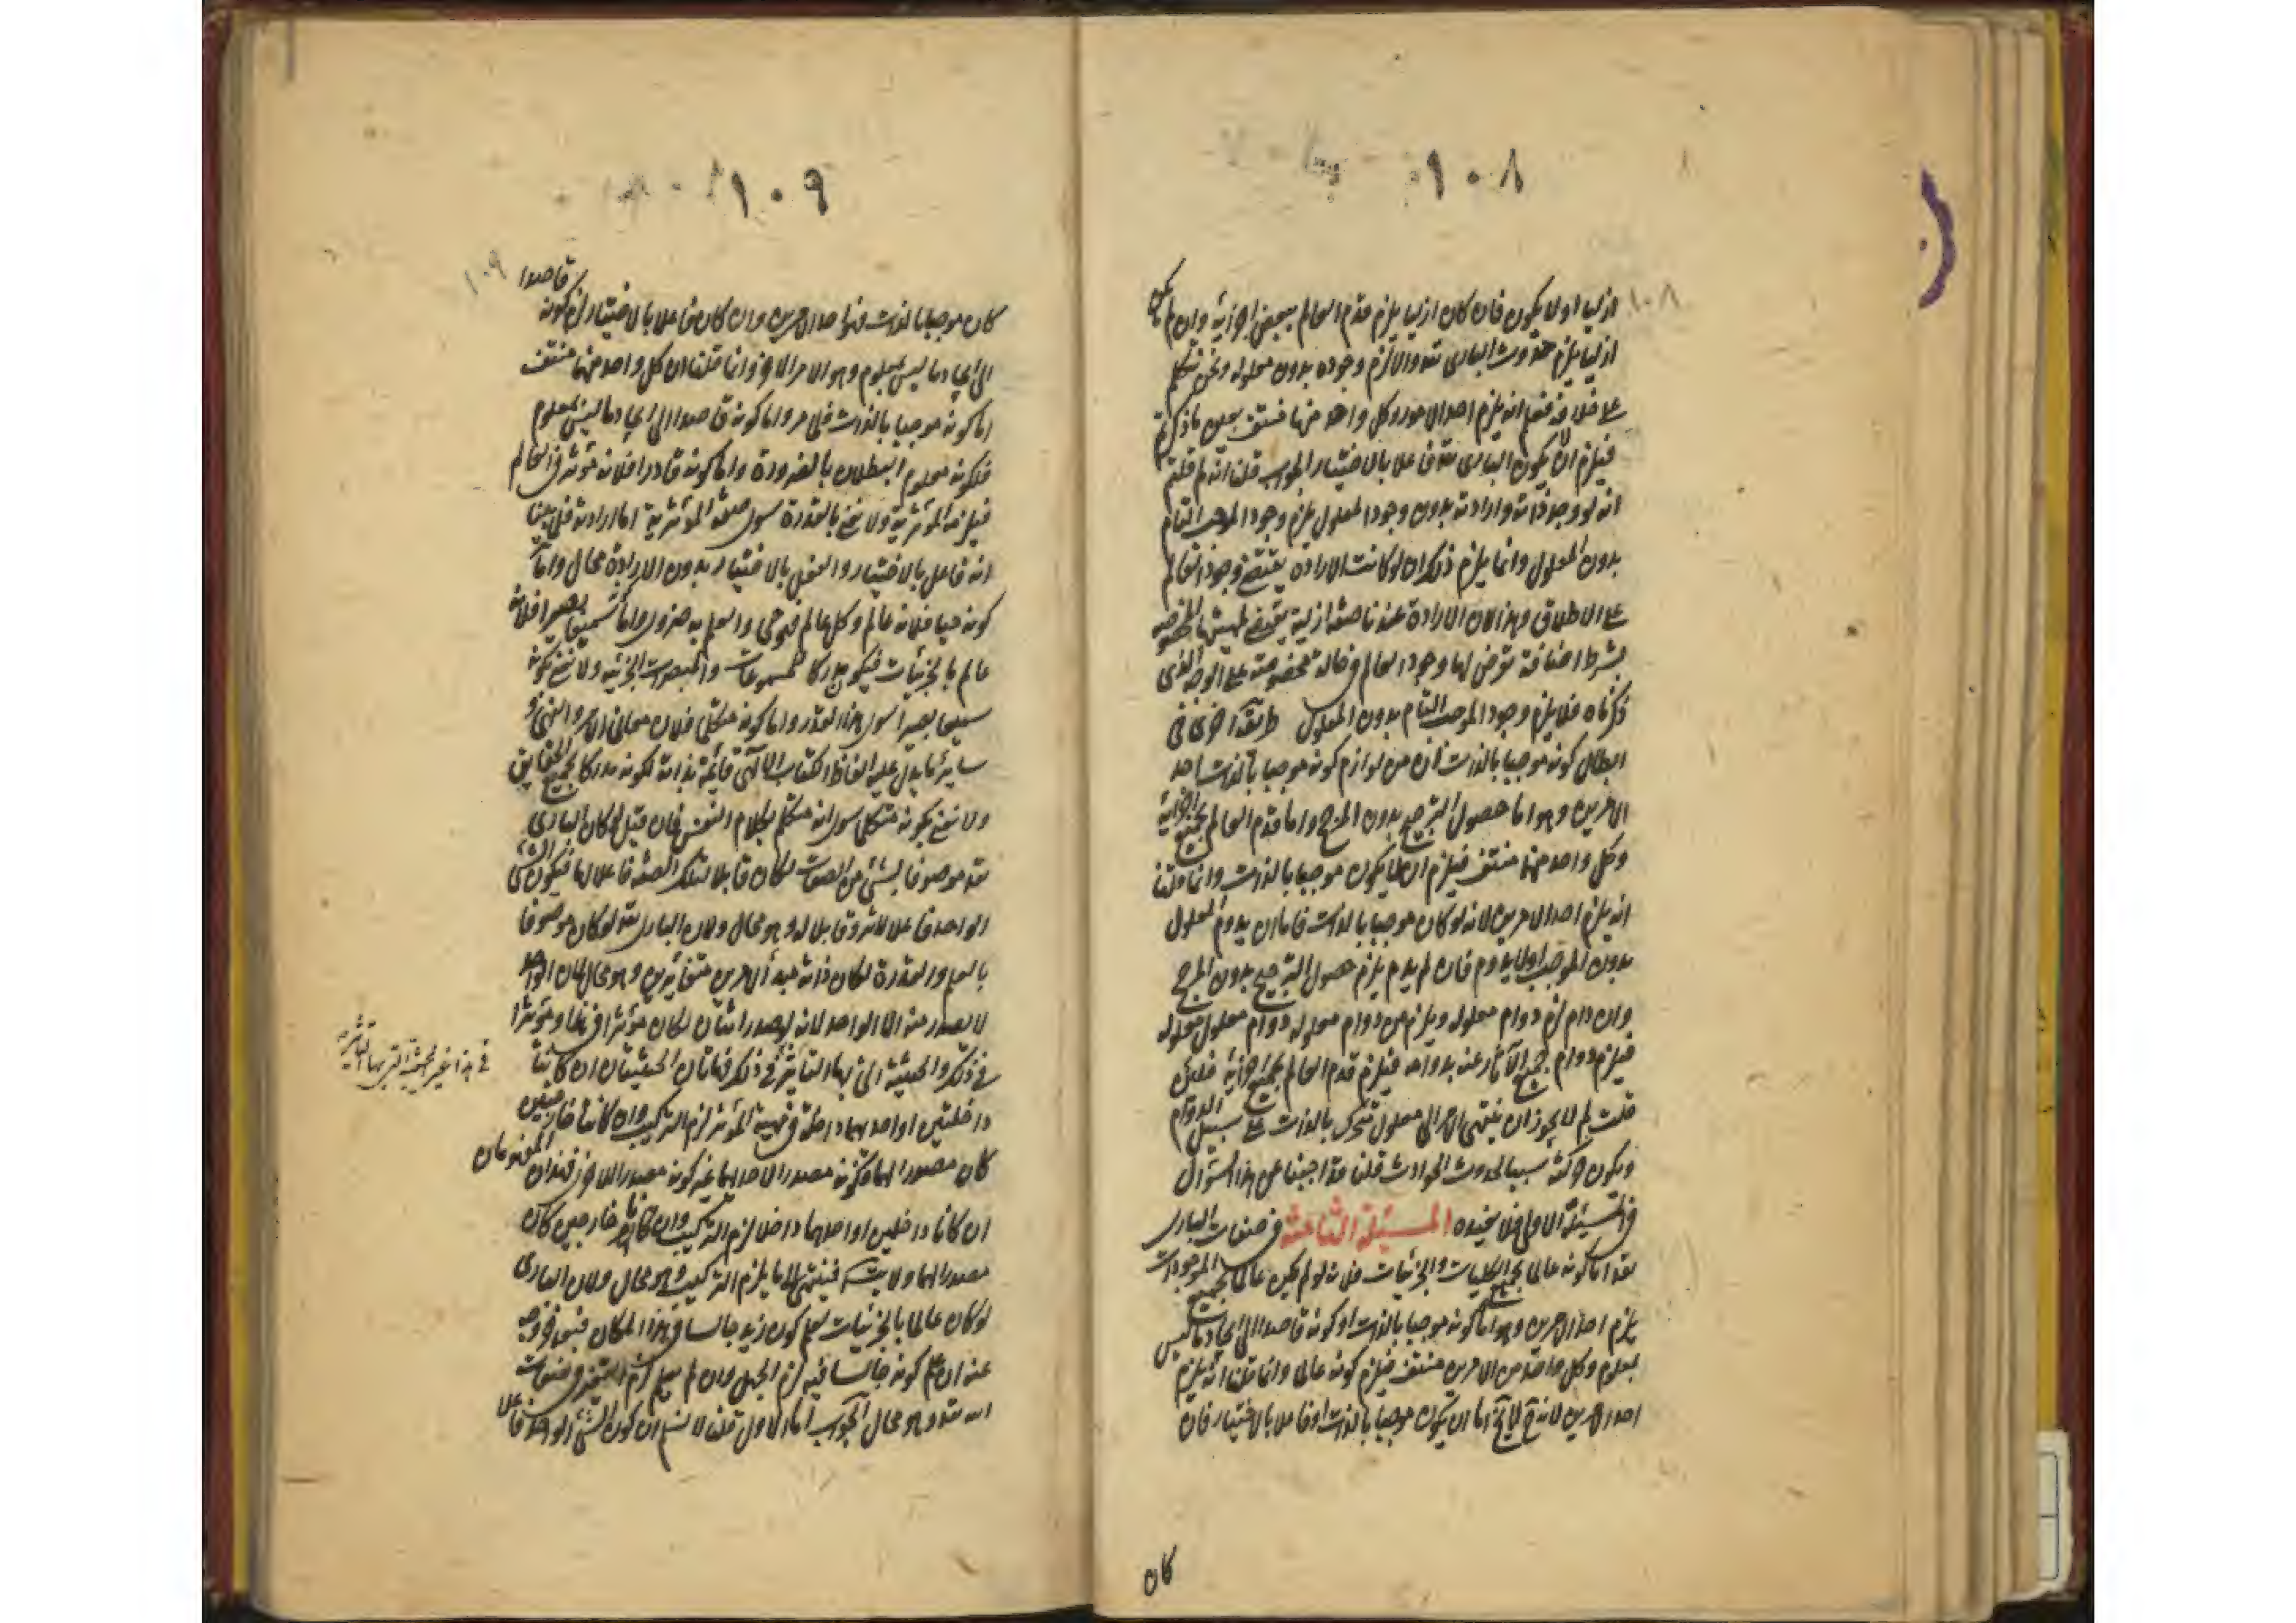 ١٠٨
١٠٨
ازليا اولا يكون فان كان ازليا يلزم قدم العالم ببعض اجزائه وان لم يكن
ازليا يلزم حدوث البارى تعه والا لزم وجوده بدون معلوله ونحن نتكلم
على خلافه فعلم انه يلزم احد الامور وكل واحد منها منتف بعين ما ذكرتم
فيلزم ان لا يكون البارى تعه فاعلا بالاختيار الجواب قلنا انه لم قلتم
انه لو وجد ذاته وارادته بدون وجود المعلول يلزم وجود الموجب التام
بدون المعلول وانما يلزم ذلك ان لو كانت الارادة يقتضى وجود العالم
على الاطلاق وهذا لان الارادة عندنا صفة ازلية يقتضى
بشرط اضافة تعرض لها وجود العالم فى حالة مخصوصة على الوجه الذى
ذكرناه فلا يلزم وجود الموجب التام بدون المعلول طريقة اخرى فى
ابطال كونه موجبا بالذات ان من لوازم كونه موجبا بالذات احد
الامرين وهو اما حصول الترجيح بدون المرجح واما قدم العالم بجميع اجزائه
وكل واحد منهما منتف فيلزم ان لا يكون موجبا بالذات وانما قلنا
انه يلزم احد الامرين لانه لو كان موجبا بالذات فاما ان يدوم المعلول
بدون الموجب اولا يدوم فان لم يدم يلزم حصول الترجيح بدون المرجح
وان دام لزم دوام معلوله ويلزم من دوام معلوله دوام معلول معلوله
فيلزم دوام جميع الآثار عنه بدوامه فيلزم قدم العالم بجميع اجزائه فلئن
قلت لم لا يجوز ان ينتهى الامر الى معلول متحرك بالذات على سبيل الدوام
ويكون حركته سببا لحدوث الحوادث قلنا قد اجبنا عن هذا السؤال
فى المسئلة الاولى فلا نعيده المسئلة الثالثة فى صفات البارى
تعه اما كونه عالما بجميع الكليات والجزئيات فلانه لو لم يكن عالما بجميع الموجودات
يلزم احد الامرين وهو اما كونه موجبا بالذات او كونه قاصدا الى ايجاد ما ليس
بمعلوم وكل واحد من الامرين منتف فيلزم كونه عالما وانما قلنا انه يلزم
احد الامرين لانه ح لا يخ اما ان يكون موجبا بالذات او فاعلا بالاختيار فان
كان
١٠٩
١٠٩
كان موجبا بالذات فهو احد الامرين وان كان فاعلا بالاختيار لزم كونه قاصدا
الى ايجاد ما ليس بمعلوم وهو الامر الآخر وانما قلنا ان كل واحد منهما منتف
اما كونه موجبا بالذات فلما مر واما كونه قاصدا الى ايجاد ما ليس بمعلوم
فلكونه معلوم البطلان بالضرورة واما كونه قادرا فلانه مؤثر فى العالم
فيلزمه المؤثرية ولا نعنى بالقدرة سوى صفة المؤثرية اما ارادته فلما بينا
انه فاعل بالاختيار والفعل بالاختيار بدون الارادة محال واما
كونه حيا فلانه عالم وكل عالم فهو حى والعلم به ضرورى واما كونه سميعا بصيرا فلانه
عالم بالجزئيات فيكون مدركا للمسموعات والمبصرات الجزئية ولا نعنى بكونه
سميعا بصيرا سوى هذا القدر واما كونه متكلما فلان معانى الامر والنهى و
ساير ما يدل عليه الفاظ الكتاب الآلهى قائمة بذاته لكونه مدركا لجميع الحقايق
ولا نعنى بكونه متكلما سوى انه متكلم بكلام النفس فان قيل لو كان البارى
تعه موصوفا بشئ من الصفات لكان قابلا لتلك الصفة فاعلا لها فيكون الشئ
الواحد فاعلا للشئ وقابلا له وهو محال ولان البارى تعه لو كان موصوفا
بالعلم والقدرة لكان ذاته مبدأ لامرين متغايرين وهو محال لان الواحد
لا يصدر منه الا الواحد لانه لو صدر اثنان لكان مؤثرا فى هذا ومؤثرا
فى ذلك والحيثية التى بها التأثير فى ذلك فهاتان الحيثيتان ان كانتا
فى هذا غير الحيثية التى بها التأثير
داخلتين او احديهما داخلة فى مهية المؤثر لزم التركيب وان كانتا خارجتين
كان مصدرا لهما فكونه مصدرا لاحديهما غير كونه مصدرا للاخرى فهذان المفهومان
ان كانا داخلين او احدهما داخلا لزم التركيب وان كانا خارجين كان
مصدرا لهما ولا يتسلسل فينتهى الى ما يلزم التركيب وهو محال ولان البارى
لو كان عالما بالجزئيات يعلم كون زيد جالسا فى هذا المكان فبعد خروجه
عنه ان علم كونه جالسا فيه لزم الجهل وان لم يعلم لزم التغير فى صفات
الله تعه وهو محال الجواب اما الاول قلنا لا نسلم ان كون الشئ الواحد فاعلا